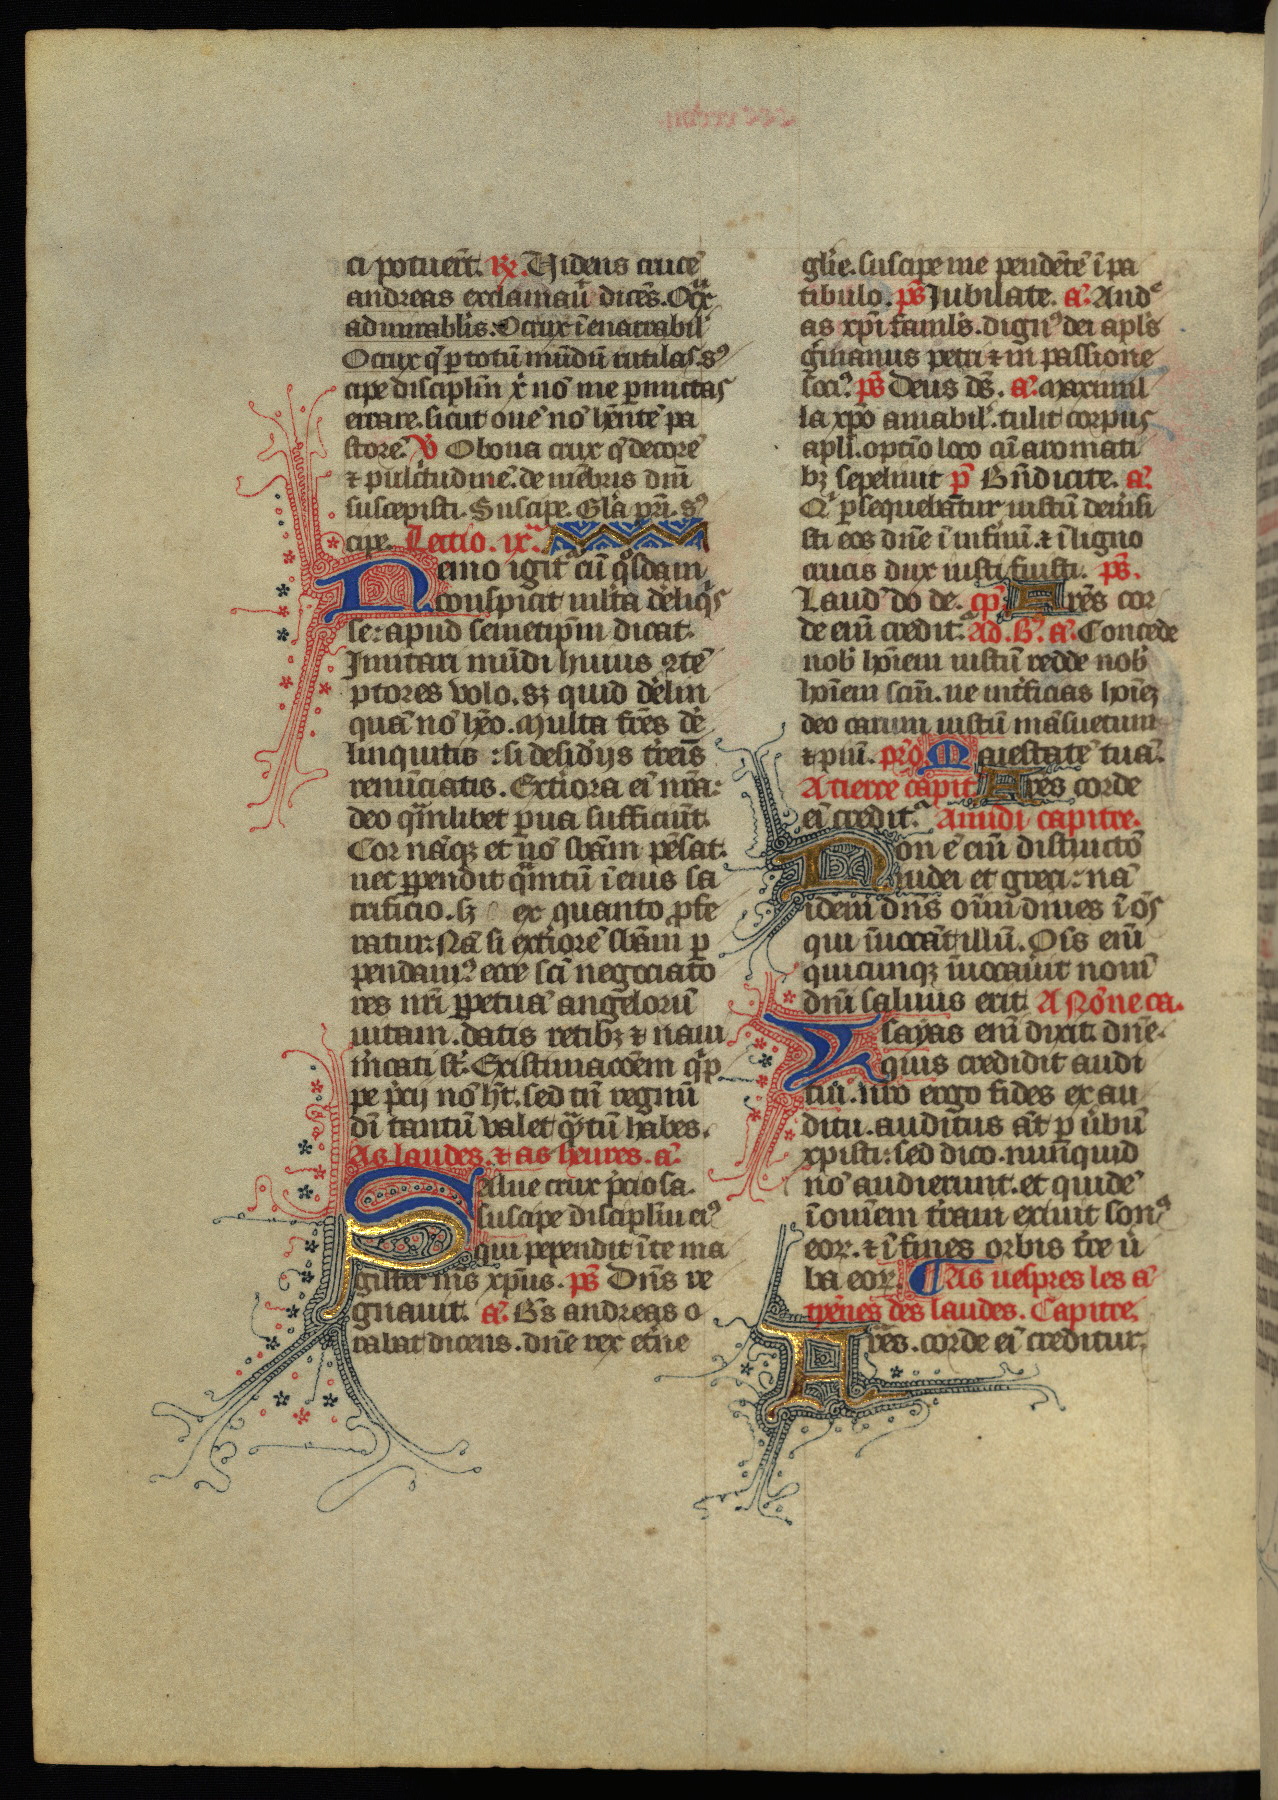 ci potuerit. R. Uidens crucē
andreas exclamauit dicēs. O crux
admirabilis: O crux īenarrabil'
O crux q̄ p totū mūdū rutilas. s⁹
cipe disciplm̄ xi nō me pmittas
errare. sicut ouē nō hn̄tē pa
storē. V O bona crux q̄ decorē
⁊ pulcitudinē. de mēbris dm̄
suscepisti. Suscipe. Gl'a pri. s⁹
cipe. Lectio. ix.ᵃ
Nemo igit' cū q̊sdam
conspicit m̄lta deliq̄s
se: apud semetip̄m dicat.
Imitari mūdi huius 9tē
ptores volo. sꝫ quid delin
quā nō hēo. Multa frēs de
linquitis: si desid'ijs trēis
renūciatis. Ext'iora ei nrā:
deo q̄mlibet pua sufficiūt.
Cor nāqꝫ et nō sb̄am pēsat.
nec ppendit q̄ntū ī eius sa
crificio. sꝫ ex quanto pfe
ratur: Nā si ext'iorē sb̄am p
pendam⁹ ecce sc̄i negociato
res nr̄i ppetuā angelorū
uitam. datis retibꝫ ⁊ naui
m̄cati st̄. Existimacōem q̄p
pe p̄cij nō h̄t. sed tn̄ regnū
di tantū valet q̄tū habes.
As laudes. ⁊ as heures. a.
Salue crux p̄ciosa.
suscipe disciplm̄ ei⁹
qui pependit ī te ma
gister m̄s xp̄us. ps̄ Dn̄s re
gnauit. a. B's andreas o
rabat dicens. dn̄e rex et̄ne
gl'ie. suscipe me pendētē ī pa
tibulo. ps̄ Iubilate. a. Andᵉ
as xp̄i faml's. dign⁹ dei apl's
ḡmanus petri ⁊ in passione
soci⁹. ps̄ Deus ds̄. a. Maximil
la xp̄o amabil'. tulit corpus
apl'i. optīo loco cū aromati
bꝫ sepeliuit p̄ Bn̄dicite. a.
Q̄ p̄sequebātur iustū demsi
sti eos dn̄e ī infinū. ⁊ ī ligno
crucis dux iusti fuisti. ps̄.
Laud' do de. cp̄. Frēs cor
de enī credit'. Ad. B'. a. Concede
nob' hoīem iustū redde nob'
hoīem scm̄. ne int'ficias hoīeꝫ
deo carum iustū māsuetum
⁊ piū. pro. Maiestatē tuā.
A tierce capit. Frēs corde
eī credit'. A midi capitre.
Non ē enī distinctō
iudei et greci: nā
idem dn̄s oīm diues ī oīs
qui īuocāt illū. Oīs enī
quicunqꝫ īuocau̇it nomē
dnī saluus erit. A Nōne ca.
Isayas enī dixit. dn̄e.
quis credidit audi
tui. n̄ro ergo fides ex au
ditu. auditus āt p ūbū
xpisti: sed dico. nunquid
nō audierunt. et quidē
ī oīnem t'ram exiuit sonᵃ
eor. ⁊ ī fines orbis tre̅ u̅
ba eor. As uespres les a
tiēnes des laudes. Capitre.
Frēs. corde eī creditur.